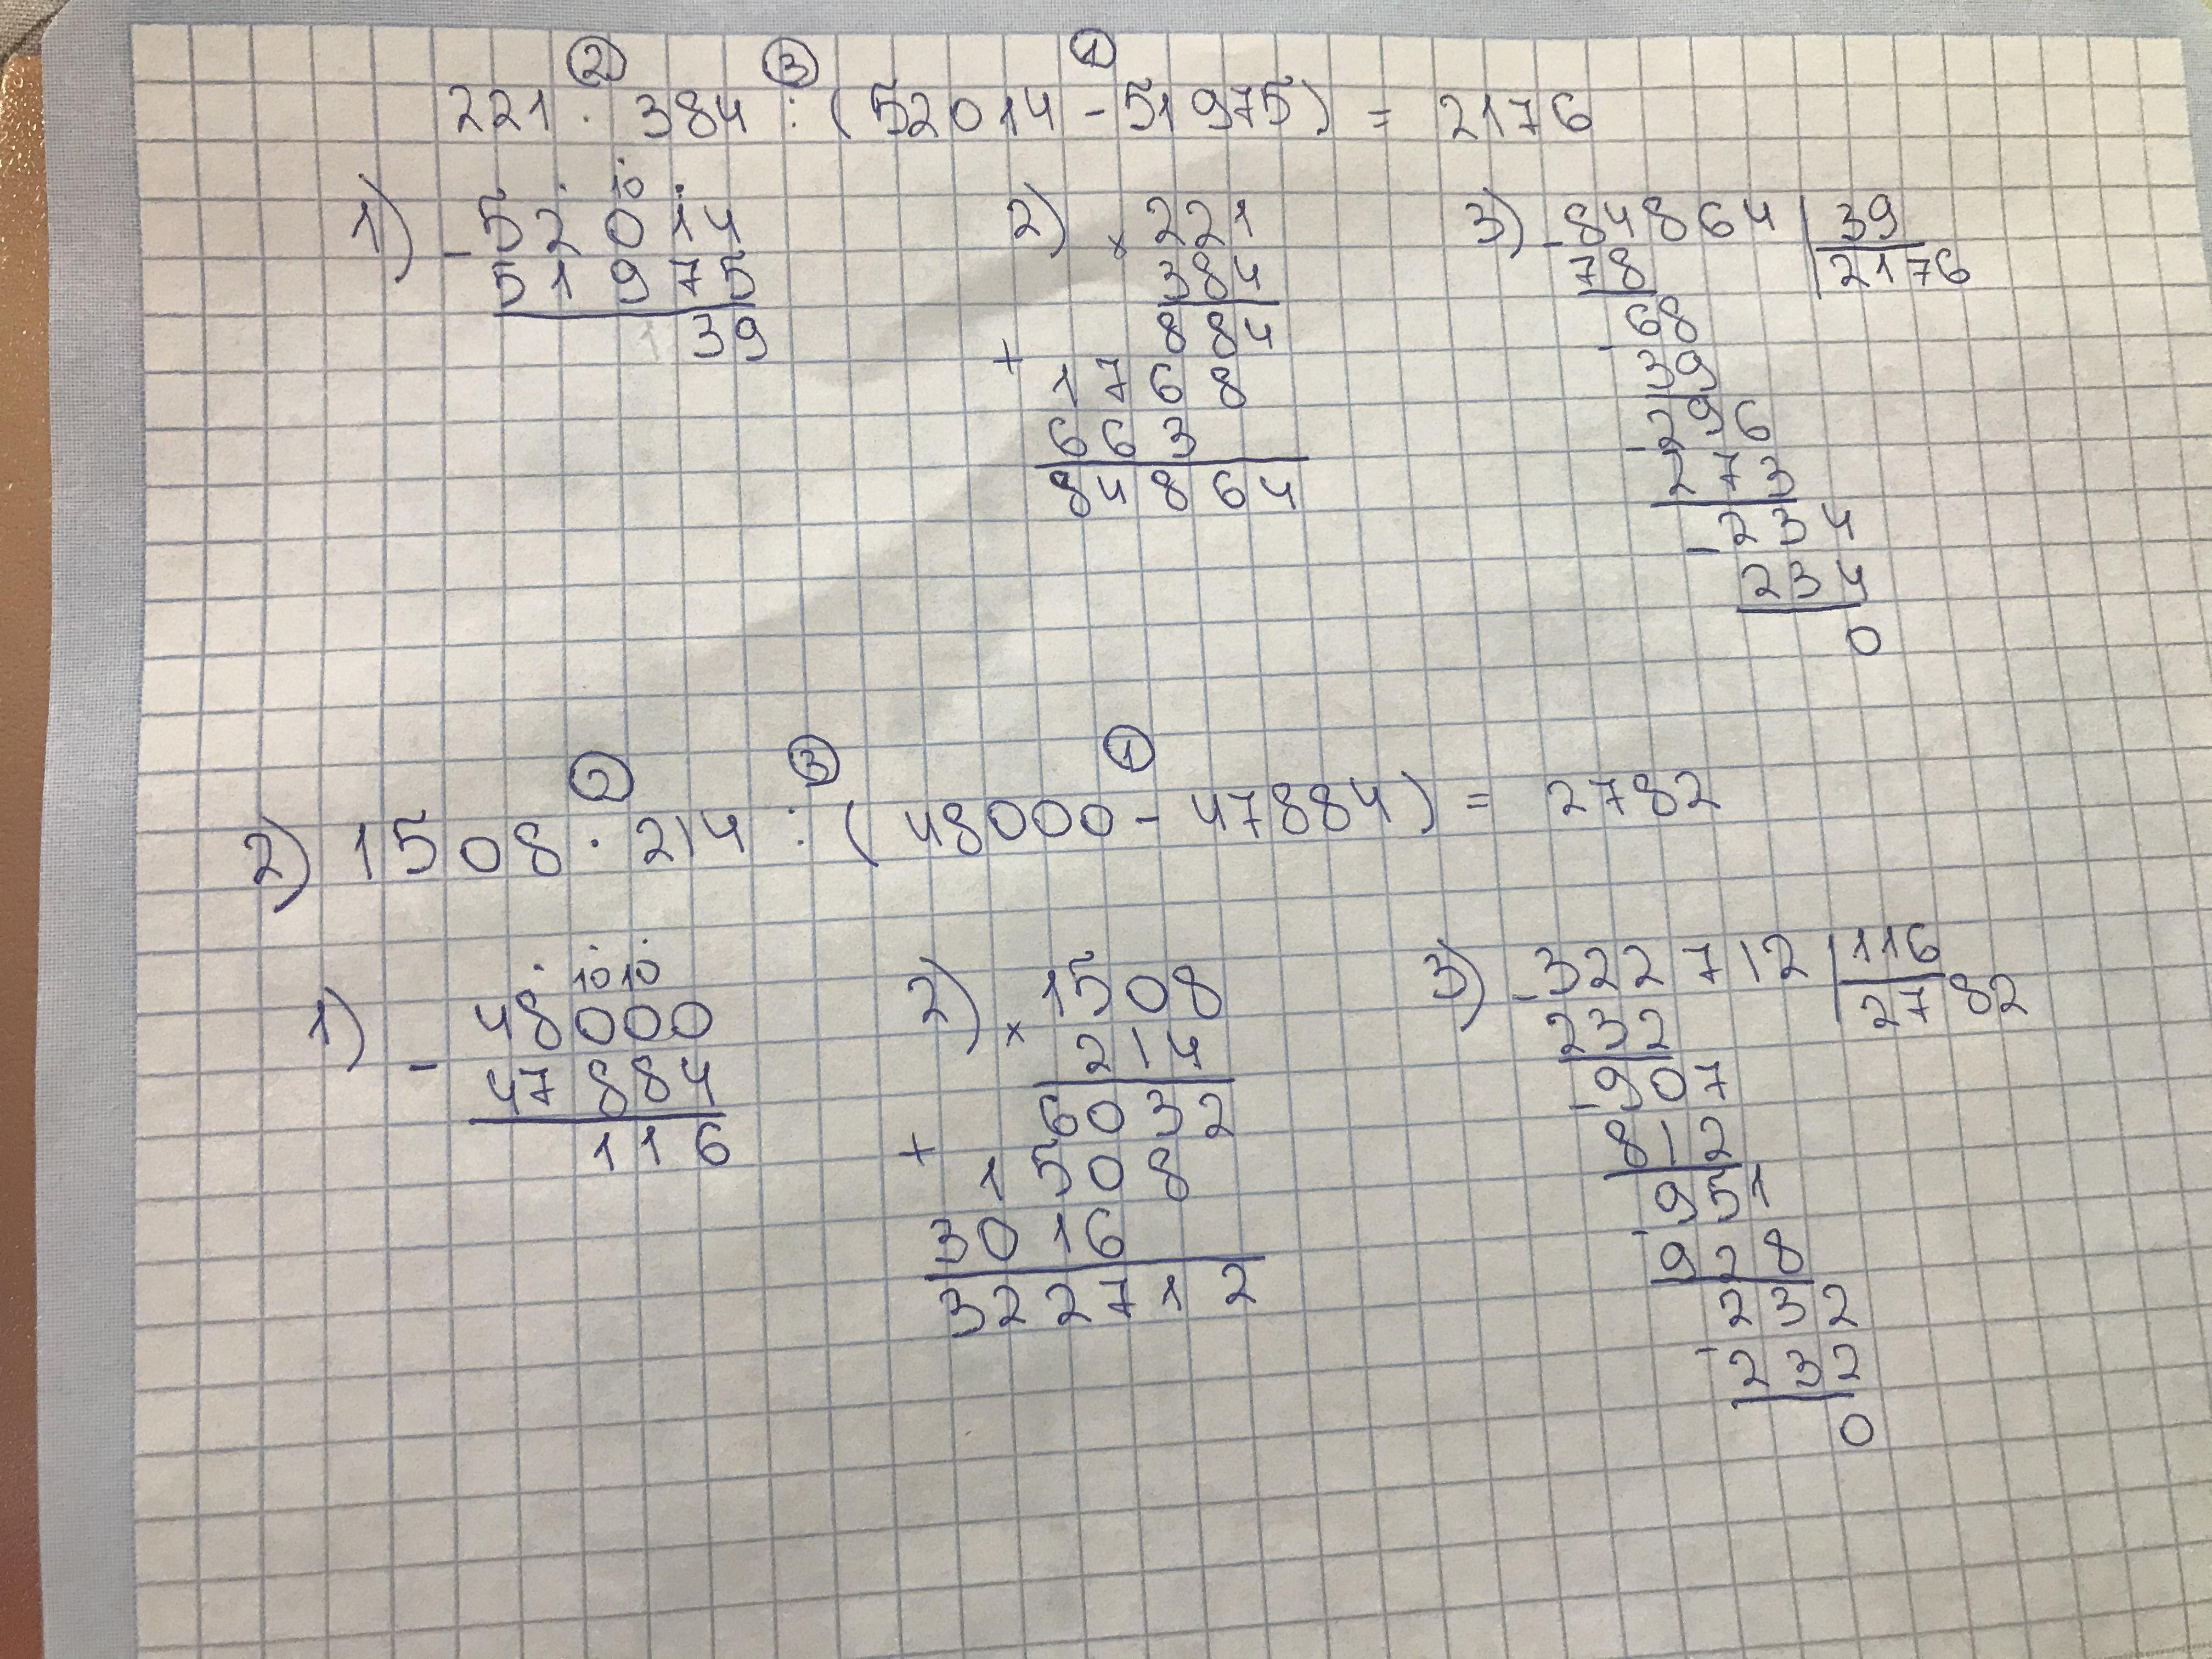 ② ③ ①
221 · 384 : ( 52014 - 51975 ) = 2176
1) 2) 3)
10
- 52014
51975
39
× 221
384
884
+
1768
663
84864
- 84864 | 39
78 2176
68
-
39
- 296
273
- 234
234
0
② ③ ①
2) 1508 · 214 : ( 48000 - 47884 ) = 2782
1)
10 10
48000
-
47884
116
2) 1508
×
214
6032
+
1508
3016
322712
3) - 322712 | 116
232 2782
- 907
812
951
-
928
232
-
232
0